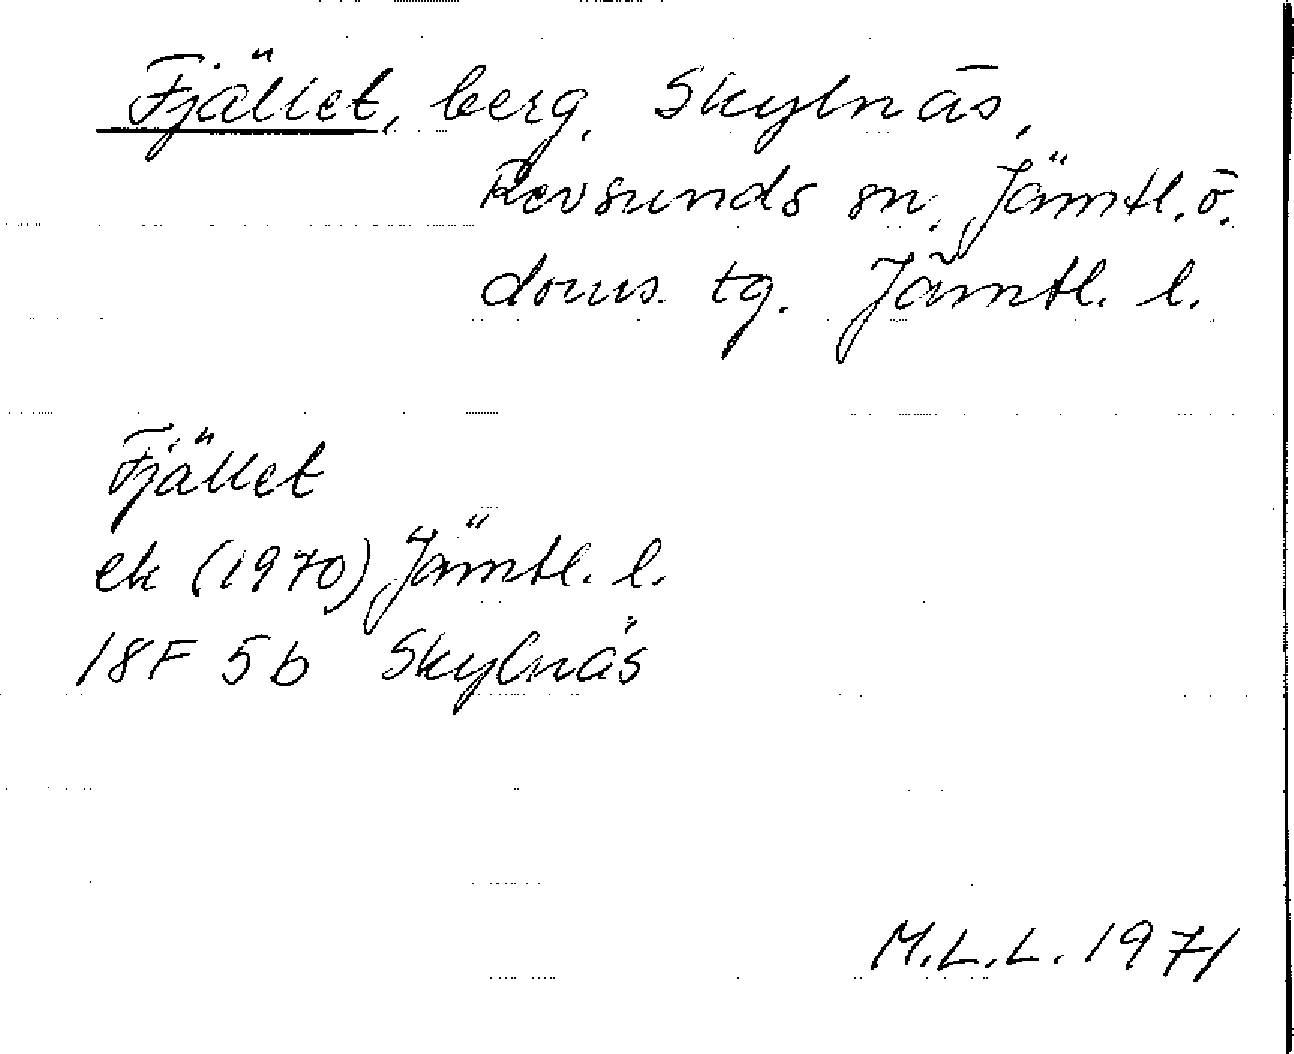 Fjället, berg, Skylnäs,
Revsunds sn, Jämtl. ö.
doms. tg. Jämtl. l.
Fjället
ek (1970) Jämtl. l.
18F 5b Skylnäs
M.L.L. 1971